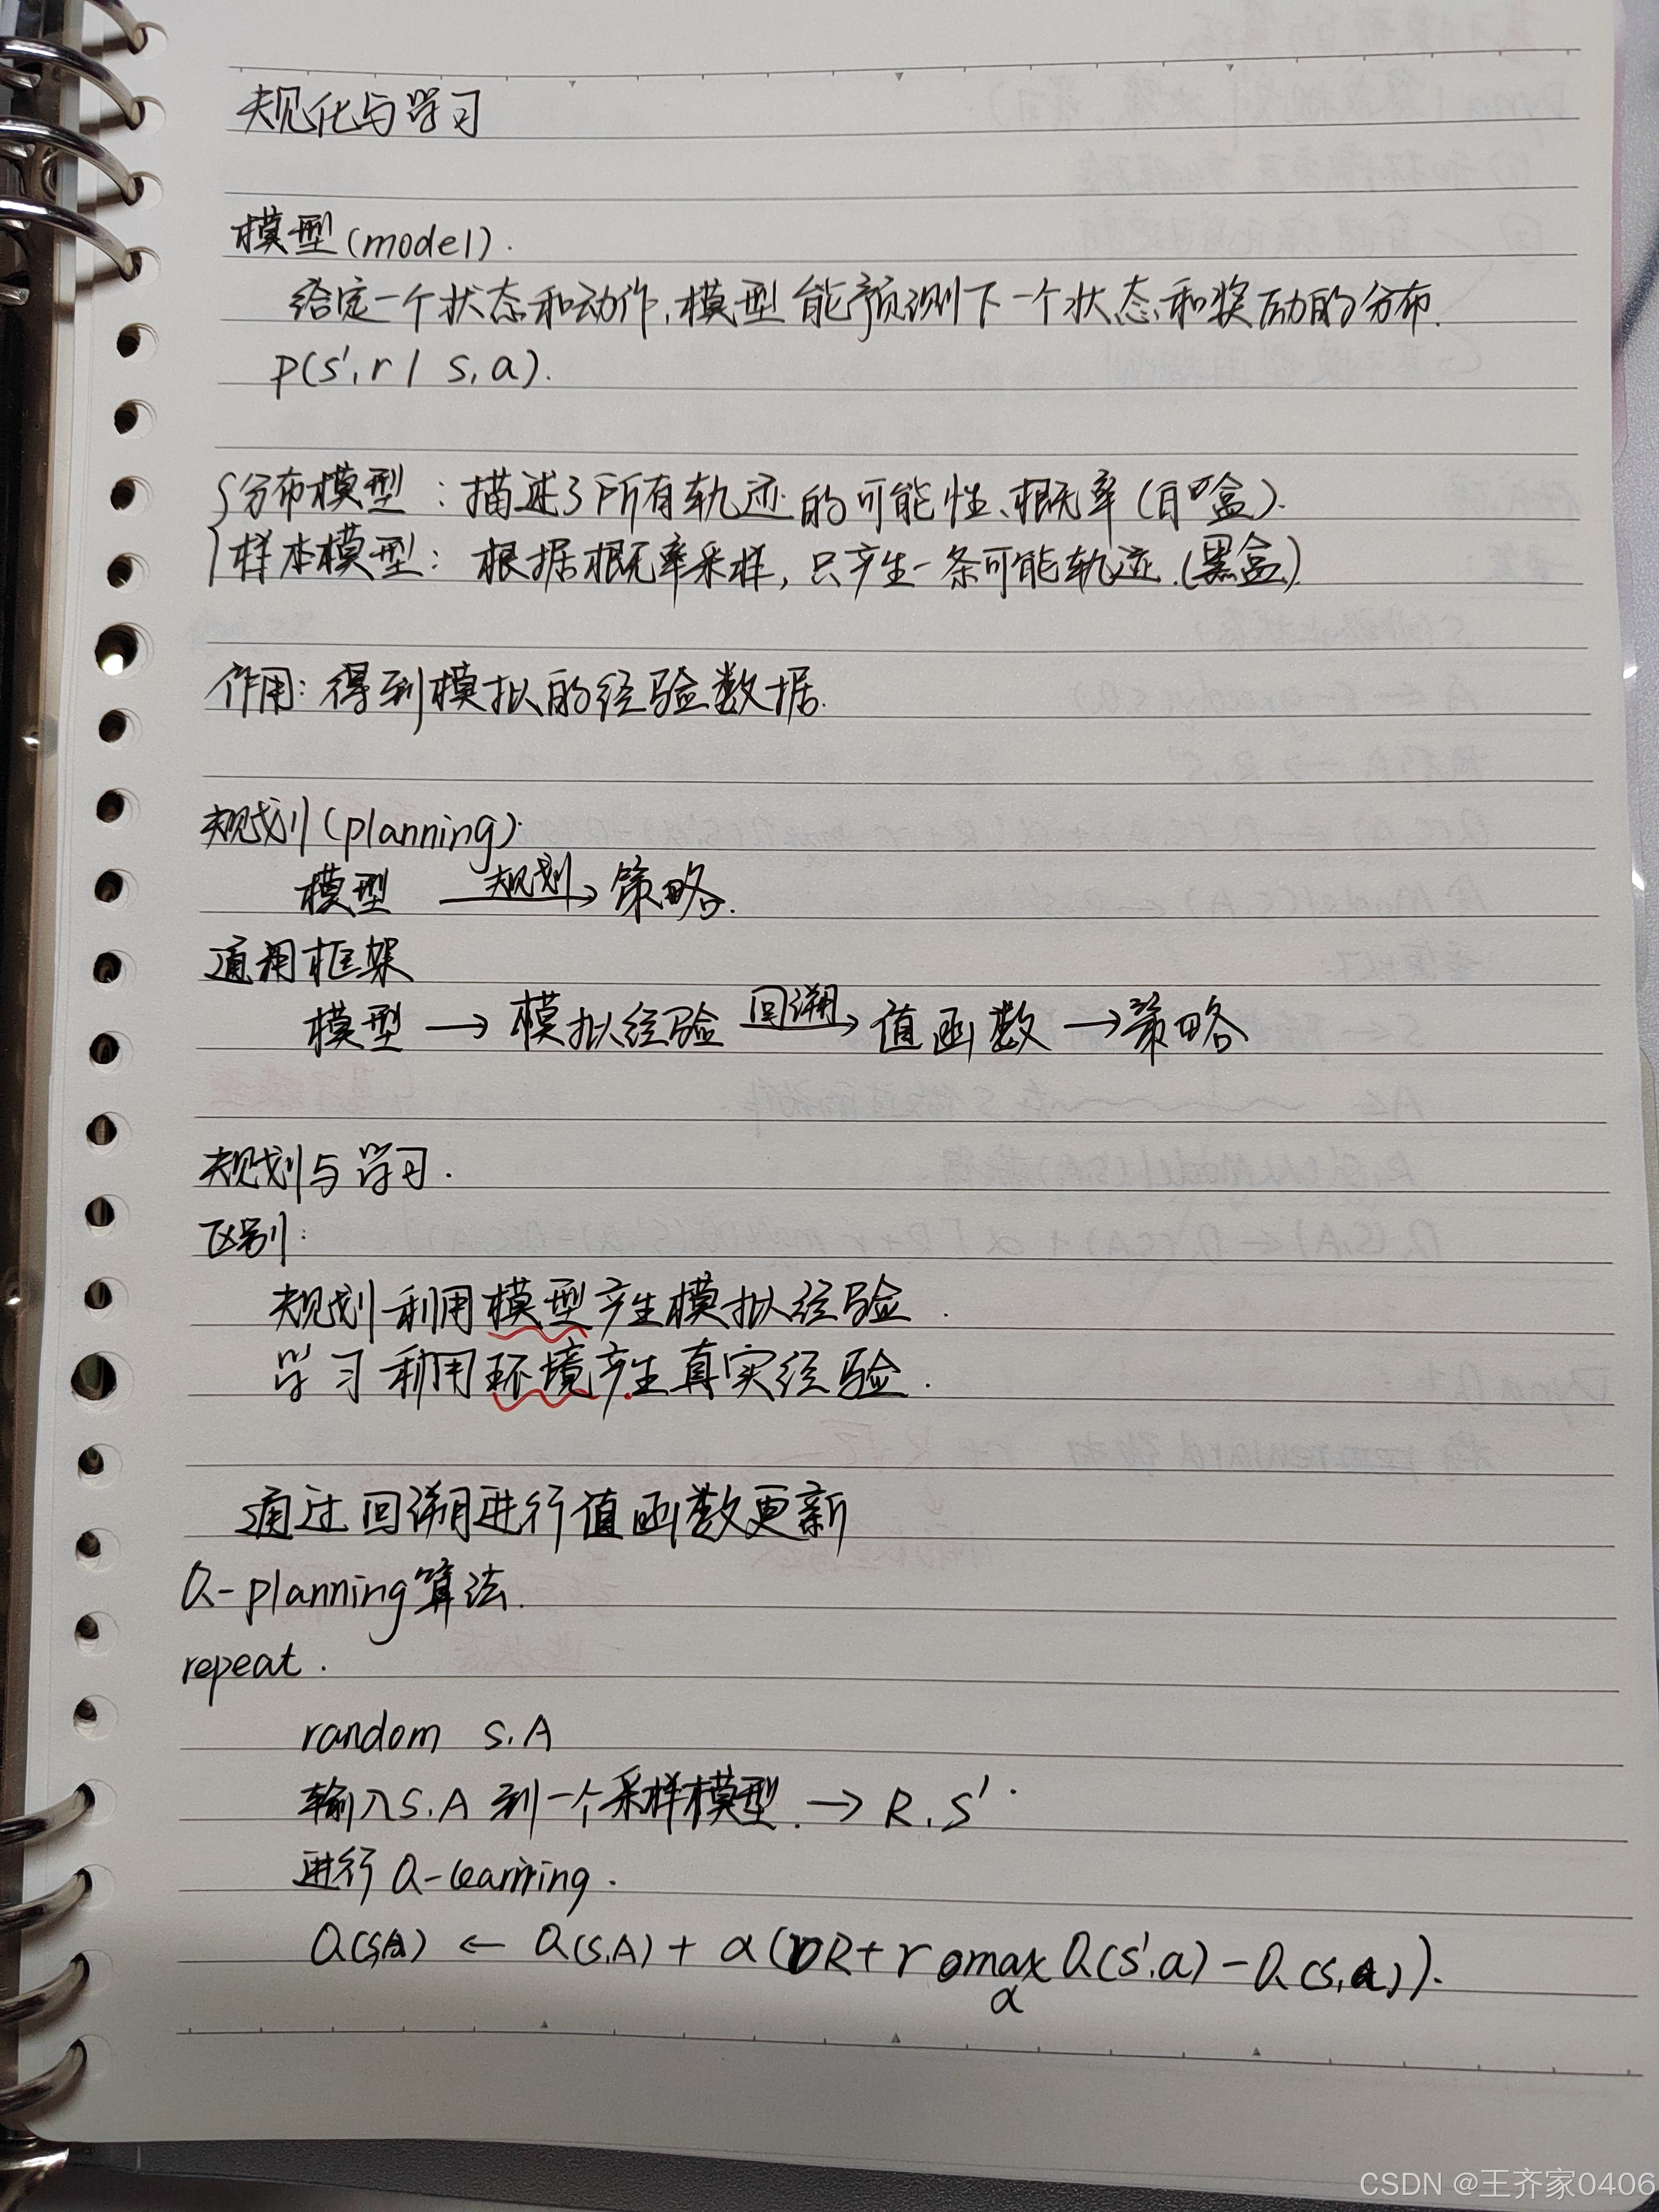 规化与学习
模型(model).
给定一个状态和动作,模型能预测下一个状态和奖励的分布.
p(s',r | s,a).
{分布模型:描述了所有轨迹的可能性、概率(白盒).
样本模型:根据概率采样,只产生一条可能轨迹.(黑盒)
作用:得到模拟的经验数据.
规划(planning).
模型 —规划→ 策略.
通用框架
模型 → 模拟经验 —回溯→ 值函数 → 策略
规划与学习.
区别:
规划利用模型产生模拟经验.
学习利用环境产生真实经验.
通过回溯进行值函数更新
Q-planning算法.
repeat.
random S.A
输入S.A 到一个采样模型. → R.S'
进行Q-learning.
Q(S,A) ← Q(S,A) + α(R + r max Q(s'.a) - Q(S,A)).
a
CSDN @王齐家0406